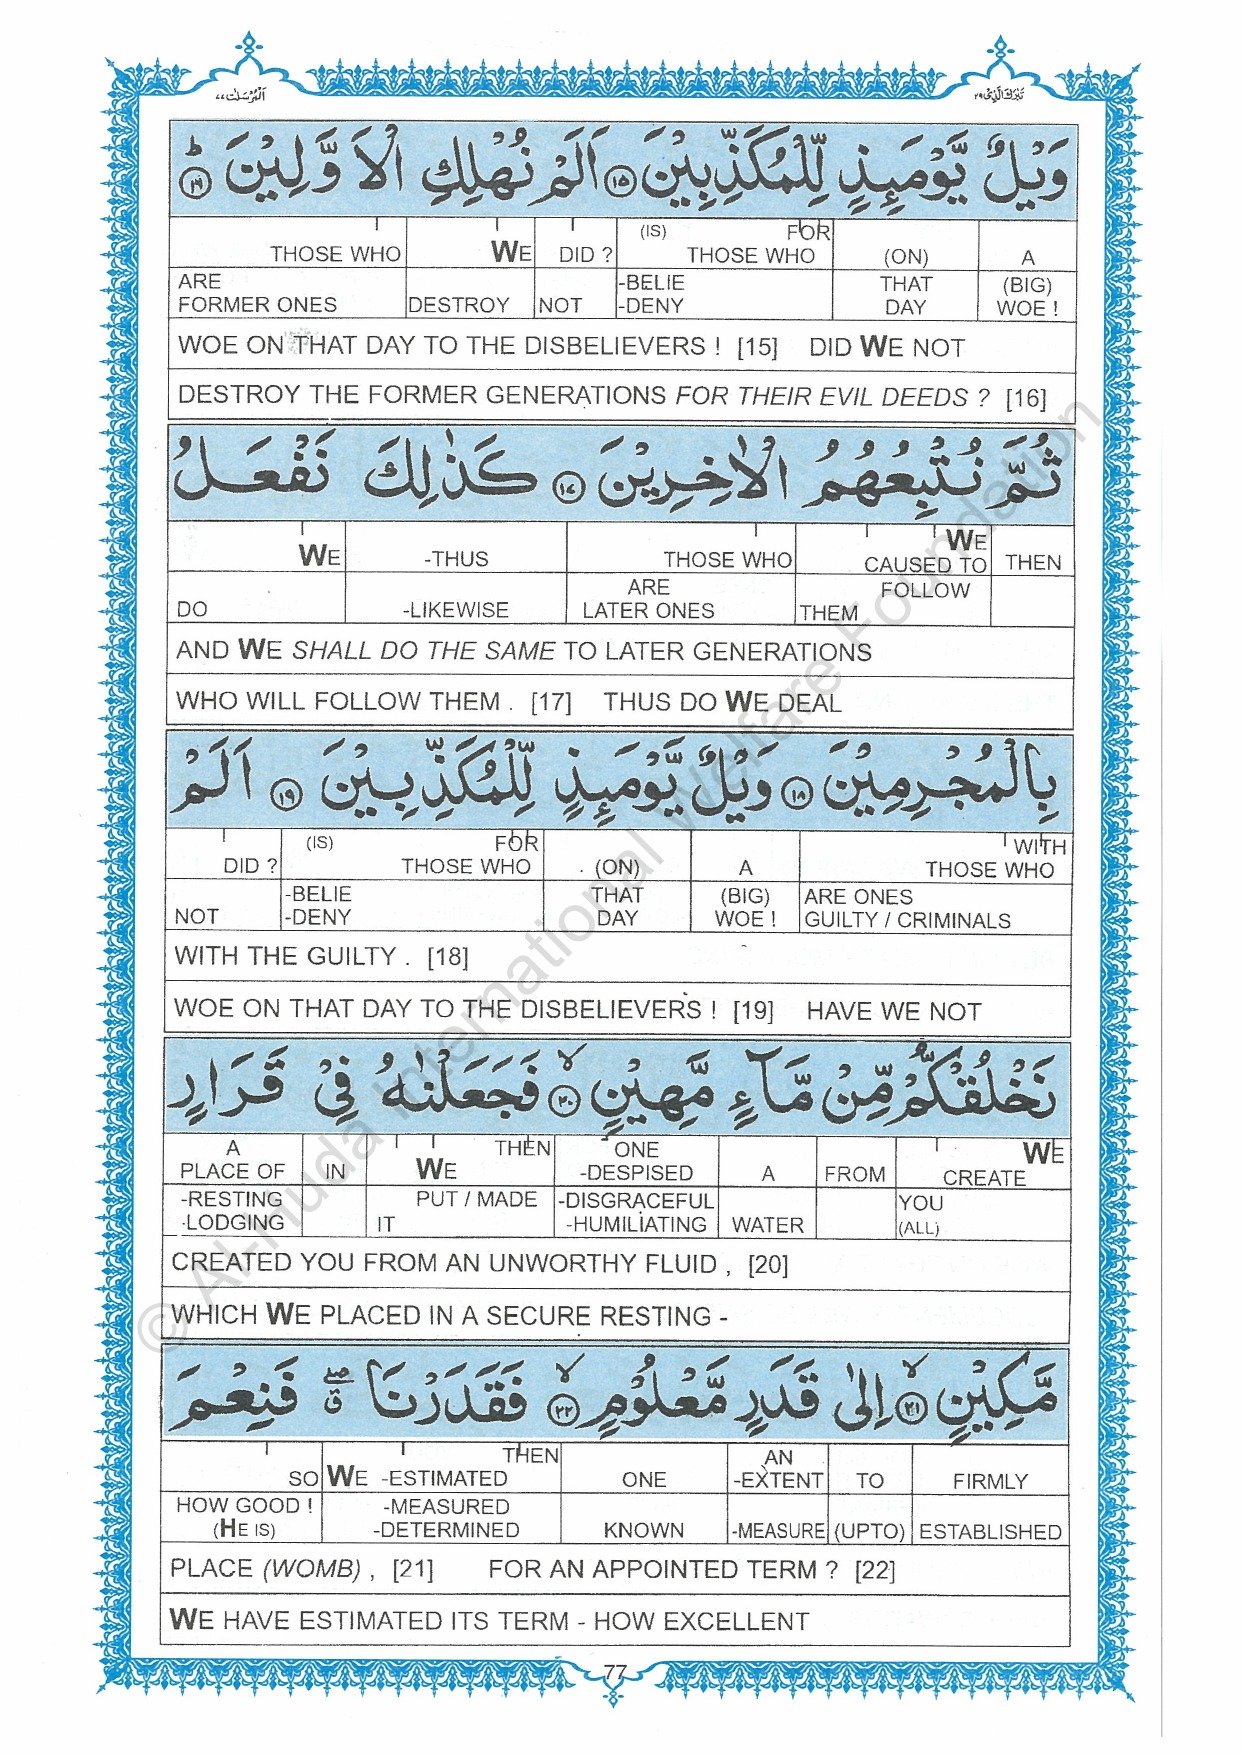 المرسلت ٧٧
تبرك الذي ٢٩
وَيْلٌ يَّوْمَئِذٍ لِّلْمُكَذِّبِيْنَ ۝١٥ اَلَمْ نُهْلِكِ الْاَوَّلِيْنَ ۝١٦ؕ
THOSE WHO WE DID ? (IS) FOR THOSE WHO (ON) A
ARE FORMER ONES DESTROY NOT -BELIE -DENY THAT DAY (BIG) WOE !
WOE ON THAT DAY TO THE DISBELIEVERS ! [15] DID WE NOT
DESTROY THE FORMER GENERATIONS FOR THEIR EVIL DEEDS ? [16]
ثُمَّ نُتْبِعُهُمُ الْاٰخِرِيْنَ ۝١٧ كَذٰلِكَ نَفْعَلُ
WE -THUS THOSE WHO WE CAUSED TO THEN
DO -LIKEWISE ARE LATER ONES FOLLOW THEM
AND WE SHALL DO THE SAME TO LATER GENERATIONS
WHO WILL FOLLOW THEM . [17] THUS DO WE DEAL
بِالْمُجْرِمِيْنَ ۝١٨ وَيْلٌ يَّوْمَئِذٍ لِّلْمُكَذِّبِيْنَ ۝١٩ اَلَمْ
DID ? (IS) FOR THOSE WHO (ON) A WITH THOSE WHO
NOT -BELIE -DENY THAT DAY (BIG) WOE ! ARE ONES GUILTY / CRIMINALS
WITH THE GUILTY . [18]
WOE ON THAT DAY TO THE DISBELIEVERS ! [19] HAVE WE NOT
نَخْلُقْكُّمْ مِّنْ مَّآءٍ مَّهِيْنٍ ۝٢٠ۙ فَجَعَلْنٰهُ فِيْ قَرَارٍ
A PLACE OF IN WE THEN ONE -DESPISED A FROM WE CREATE
-RESTING -LODGING PUT / MADE IT -DISGRACEFUL -HUMILIATING WATER YOU (ALL)
CREATED YOU FROM AN UNWORTHY FLUID , [20]
WHICH WE PLACED IN A SECURE RESTING -
مَّكِيْنٍ ۝٢١ۙ اِلٰى قَدَرٍ مَّعْلُوْمٍ ۝٢٢ۙ فَقَدَرْنَا ۖۗ فَنِعْمَ
SO WE THEN -ESTIMATED ONE AN -EXTENT TO FIRMLY
HOW GOOD ! (HE IS) -MEASURED -DETERMINED KNOWN -MEASURE (UPTO) ESTABLISHED
PLACE (WOMB) , [21] FOR AN APPOINTED TERM ? [22]
WE HAVE ESTIMATED ITS TERM - HOW EXCELLENT
77
© Al-Huda International Welfare Foundation